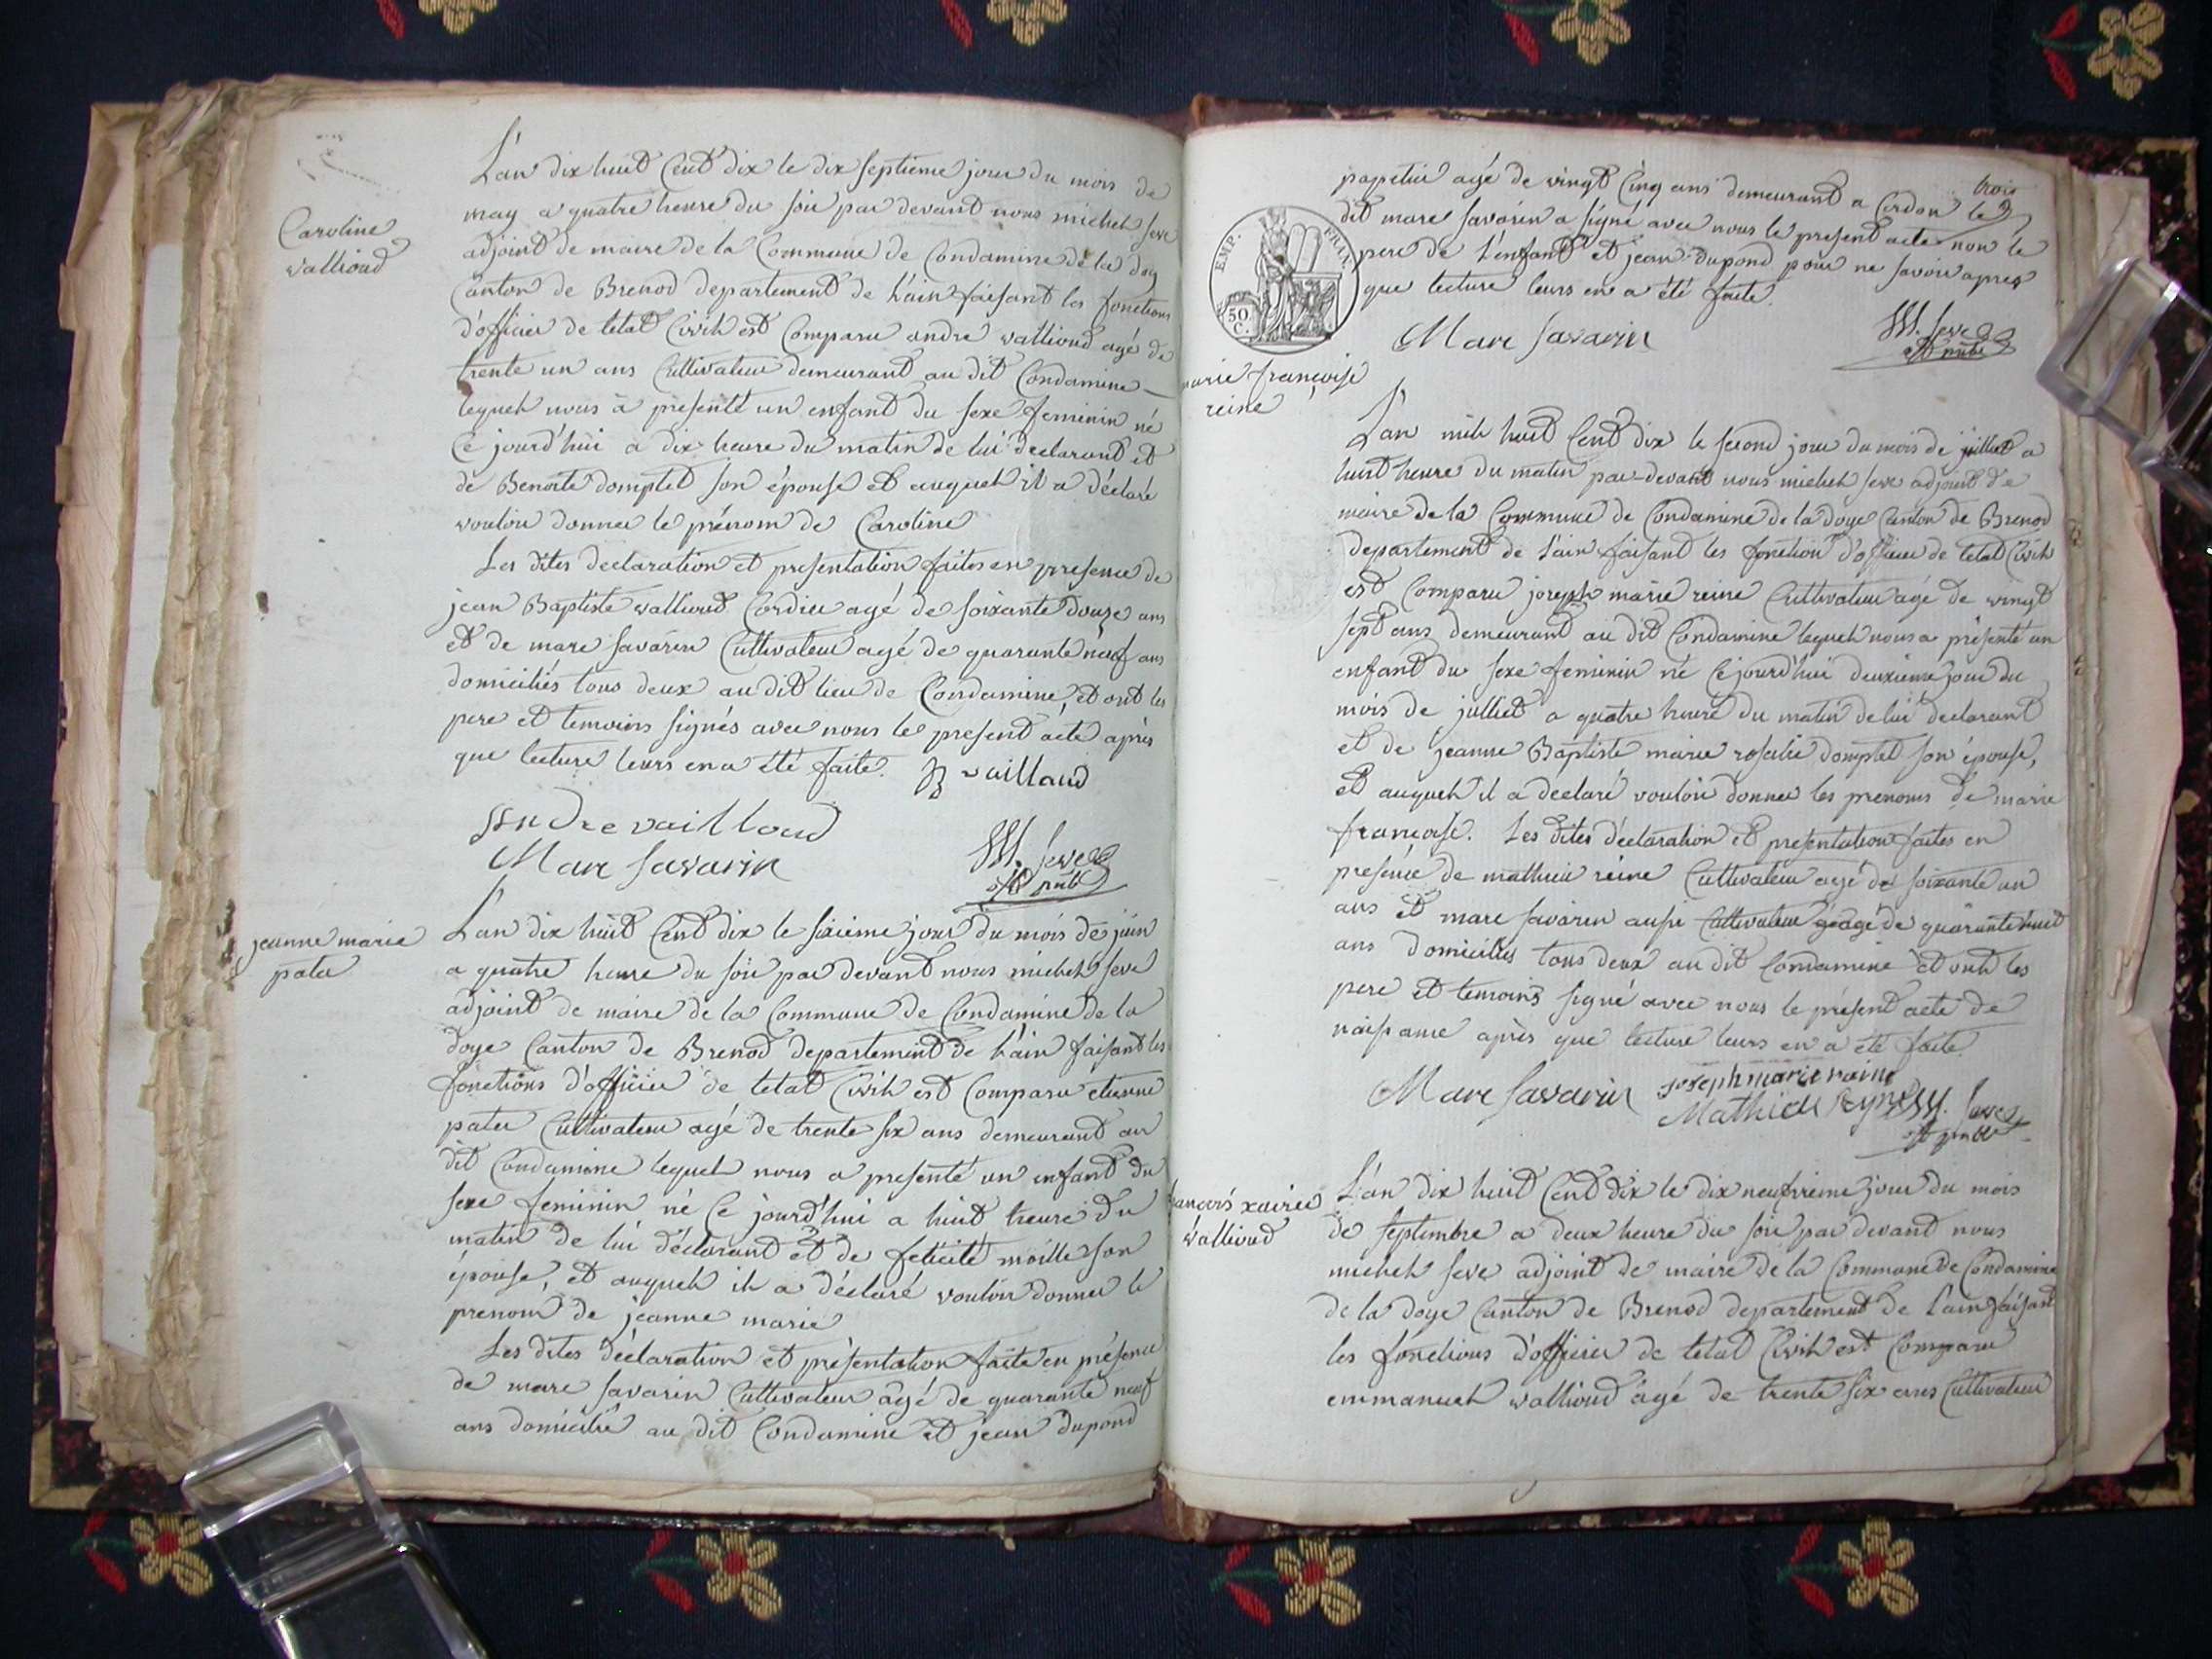 Caroline
wallioud
L'an dix huit Cent dix le dix septieme jour du mois de
may a quatre heure du soir par devant nous michel seve
adjoint de maire de la Commune de Condamine de la doy
Canton de Brenod departement de L'ain faisant les fonctions
d'officier de letat Civil est Comparu andre wallioud agé de
trente un ans Cultivateur demeurant au dit Condamine
lequel nous a presenté un enfant du sexe feminin né
Ce jourd'hui a dix heure du matin de lui declarant et
de Benoite domptet son épouse et auquel il a déclaré
vouloir donner le prénom de Caroline
Les dites declaration et presentation faites en presence de
jean Baptiste wallioud Cordier agé de soixante douze ans
et de marc savarin Cultivateur agé de quarante neuf ans
domiciliés tous deux au dit lieu de Condamine, et ont les
pere et temoins signés avec nous le present acte après
que lecture leurs en a été faite.
JB vaillaud
Andre vailloud
Marc Savarin
M. Seve
off publ
jeanne marie
pater
L'an dix huit Cent dix le sixieme jour du mois de juin
a quatre heure du soir par devant nous michel seve
adjoint de maire de la Commune de Condamine de la
doye Canton de Brenod departement de L'ain faisant les
fonctions d'officier de letat Civil est Comparu etienne
pater Cultivateur agé de trente six ans demeurant au
dit Condamine lequel nous a presenté un enfant du
sexe feminin né Ce jourd'hui a huit heure du
matin de lui déclarant et de felicité moille son
épouse, et auquel il a déclaré vouloir donner le
prenom de jeanne marie
Les dites déclaration et présentation faite en présence
de marc savarin Cultivateur agé de quarante neuf
ans domicilié au dit Condamine et jean dupond
EMP. FRAN.
50 C.
papetier agé de vingt Cinq ans demeurant a Cerdon le trois
dit marc savarin a signé avec nous le present acte non le
pere de L'enfant et jean dupond pour ne savoir apres
que lecture leurs en a été faite.
Marc Savarin
M. Seve
off publ
marie françoise
reine
L'an mil huit Cent dix le second jour du mois de juillet a
huit heure du matin par-devant nous michel seve adjoint de
maire de la Commune de Condamine de la doye Canton de Brenod
departement de L'ain faisant les fonction d'officier de letat Civil
est Comparu joseph marie reine Cultivateur agé de vingt
sept ans demeurant au dit Condamine lequel nous a présenté un
enfant du sexe feminin né Cejourd'hui deuxieme jour du
mois de julliet a quatre heure du matin de lui declarant
et de jeanne Baptiste marie rosalie domptet son épouse,
et auquel il a declaré vouloir donner les prenoms de marie
françoise. Les dites déclaration et presentation faites en
presence de mathieu reine Cultivateur agé de soixante un
ans et marc savarin aussi Cultivateur agé de quarante huit
ans domiciliés tous deux au dit Condamine et ont les
pere et temoins signé avec nous le présent acte de
naissance après que lecture leurs en a été faite.
Marc Savarin
joseph marie
Mathieu
M. Seve
off publ
françois xavier
wallioud
L'an dix huit Cent dix le dix neufvieme jour du mois
de septembre a deux heure du soir par devant nous
michel seve adjoint de maire de la Commune de Condamine
de la doye Canton de Brenod departement de Lain faisant
les fonctions d'officier de letat Civil est Comparu
emmanuel wallioud agé de trente six ans Cultivateur